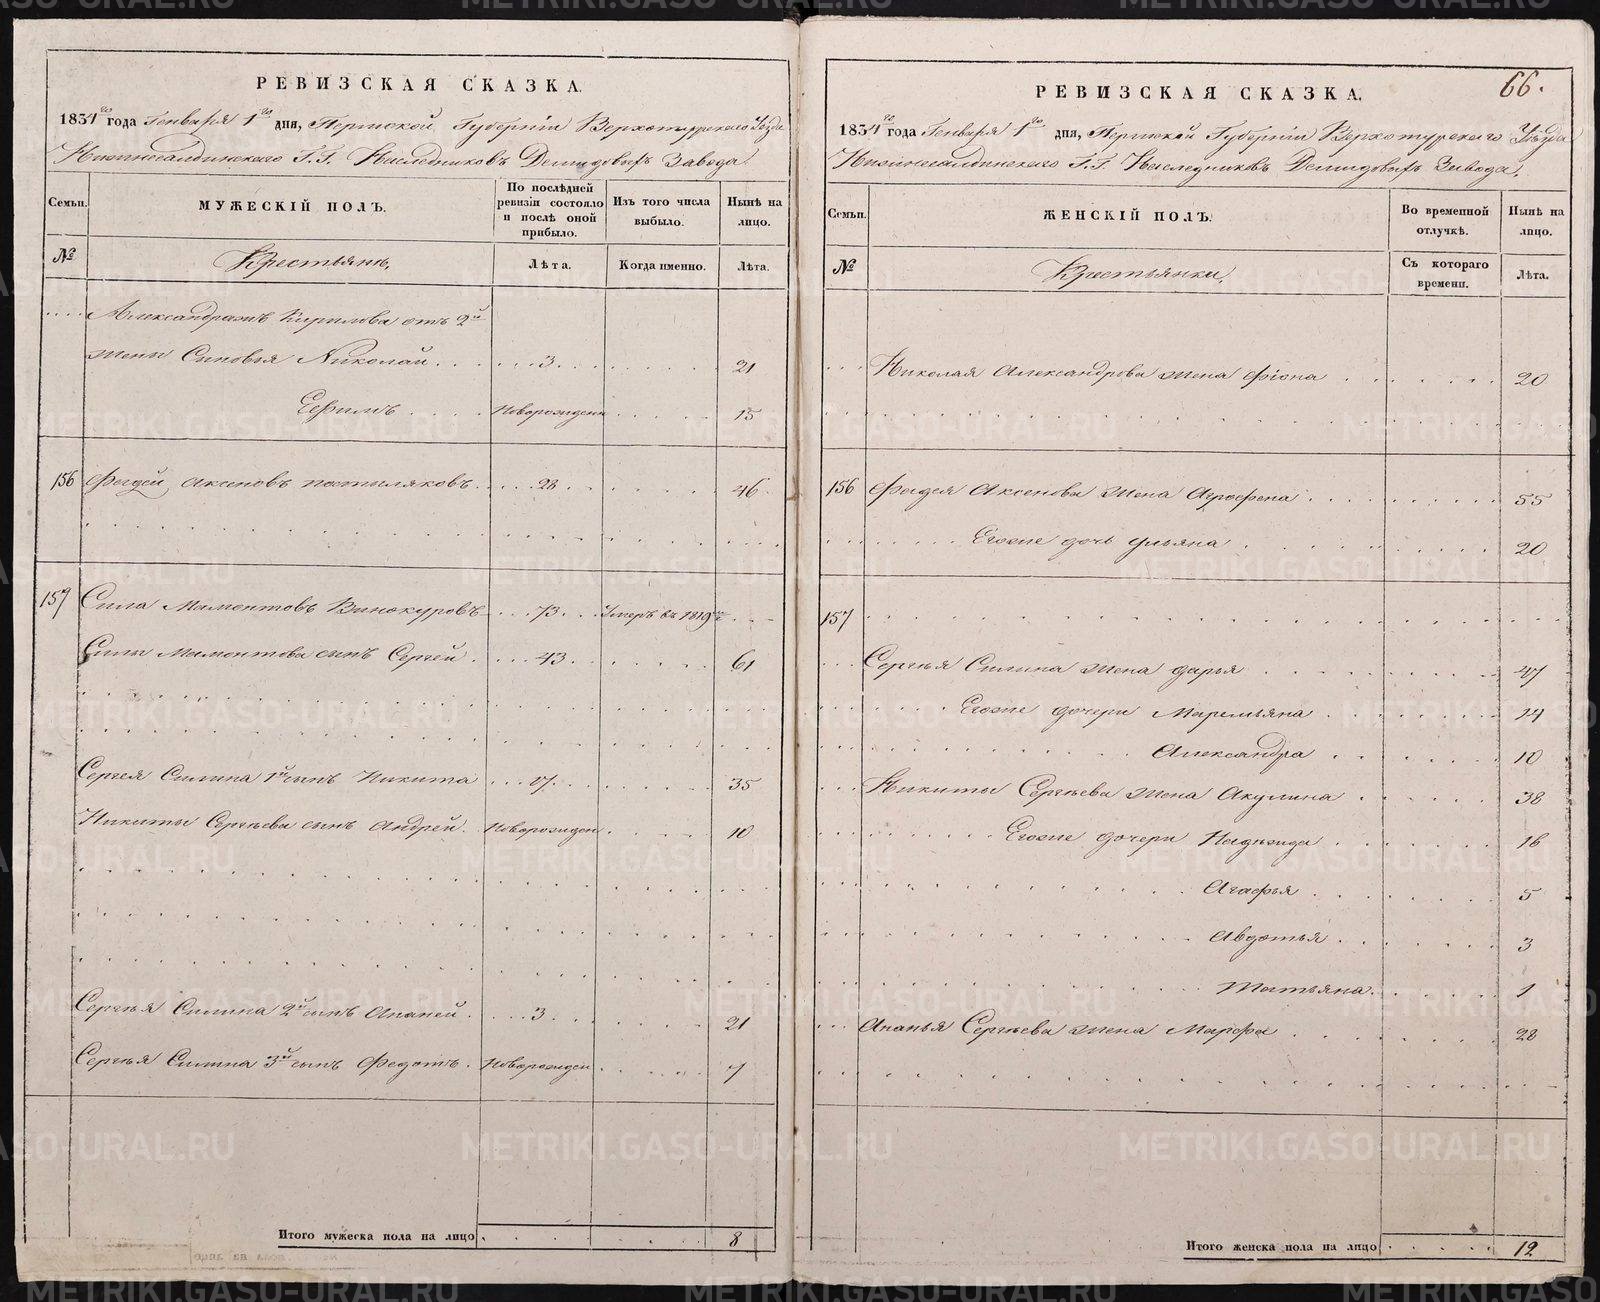 РЕВИЗСКАЯ СКАЗКА.
1834го года Генваря 1го дня, Пермской Губернiи Верхотурскаго Уезда
Нижнесалдинскаго Г.Г. Наследниковъ Демидовыхъ Завода.
Семьи.
МУЖЕСКIЙ ПОЛЪ.
По послѣдней ревизiи состояло и послѣ оной прибыло.
Изъ того числа выбыло.
Нынѣ на лицо.
№
Крестьянъ,
Лѣта.
Когда именно.
Лѣта.
Александра Кирилова отъ 2й
жены Сыновья Николай 3 21
Ефимъ Новорожденъ 15
156 Фадей Аксеновъ Постыляковъ 28 46
157 Сила Мамонтовъ Винокуровъ 73 Умеръ въ 1819мъ
Силы Мамонтова сынъ Сергей 43 61
Сергея Силина 1й сынъ Никита 17 35
Никиты Сергѣева сынъ Андрей Новорожден 10
Сергѣя Силина 2й сынъ Ананей 3 21
Сергѣя Силина 3й сынъ Федотъ Новорожден 7
Итого мужеска пола на лицо 8
66.
РЕВИЗСКАЯ СКАЗКА.
1834го года Генваря 1го дня, Пермской Губернiи Верхотурскаго Уѣзда
Нижнесалдинскаго Г.Г. Наследниковъ Демидовыхъ Завода.
Семьи.
ЖЕНСКIЙ ПОЛЪ.
Во временной отлучкѣ.
Нынѣ на лицо.
№
Крестьянки,
Съ котораго времени.
Лѣта.
Николая Александрова жена Фiона 20
156 Фадея Аксенова жена Агрофена 55
Егоже дочь Ульяна 20
157
Сергѣя Силина жена Дарья 47
Егоже дочери Маремьяна 14
Александра 10
Никиты Сергѣева жена Акулина 38
Егоже дочери Надѣжда 16
Агафья 5
Авдотья 3
Татьяна 1
Ананья Сергѣева жена Марфа 28
Итого женска пола на лицо 12
METRIKI.GASO-URAL.RU